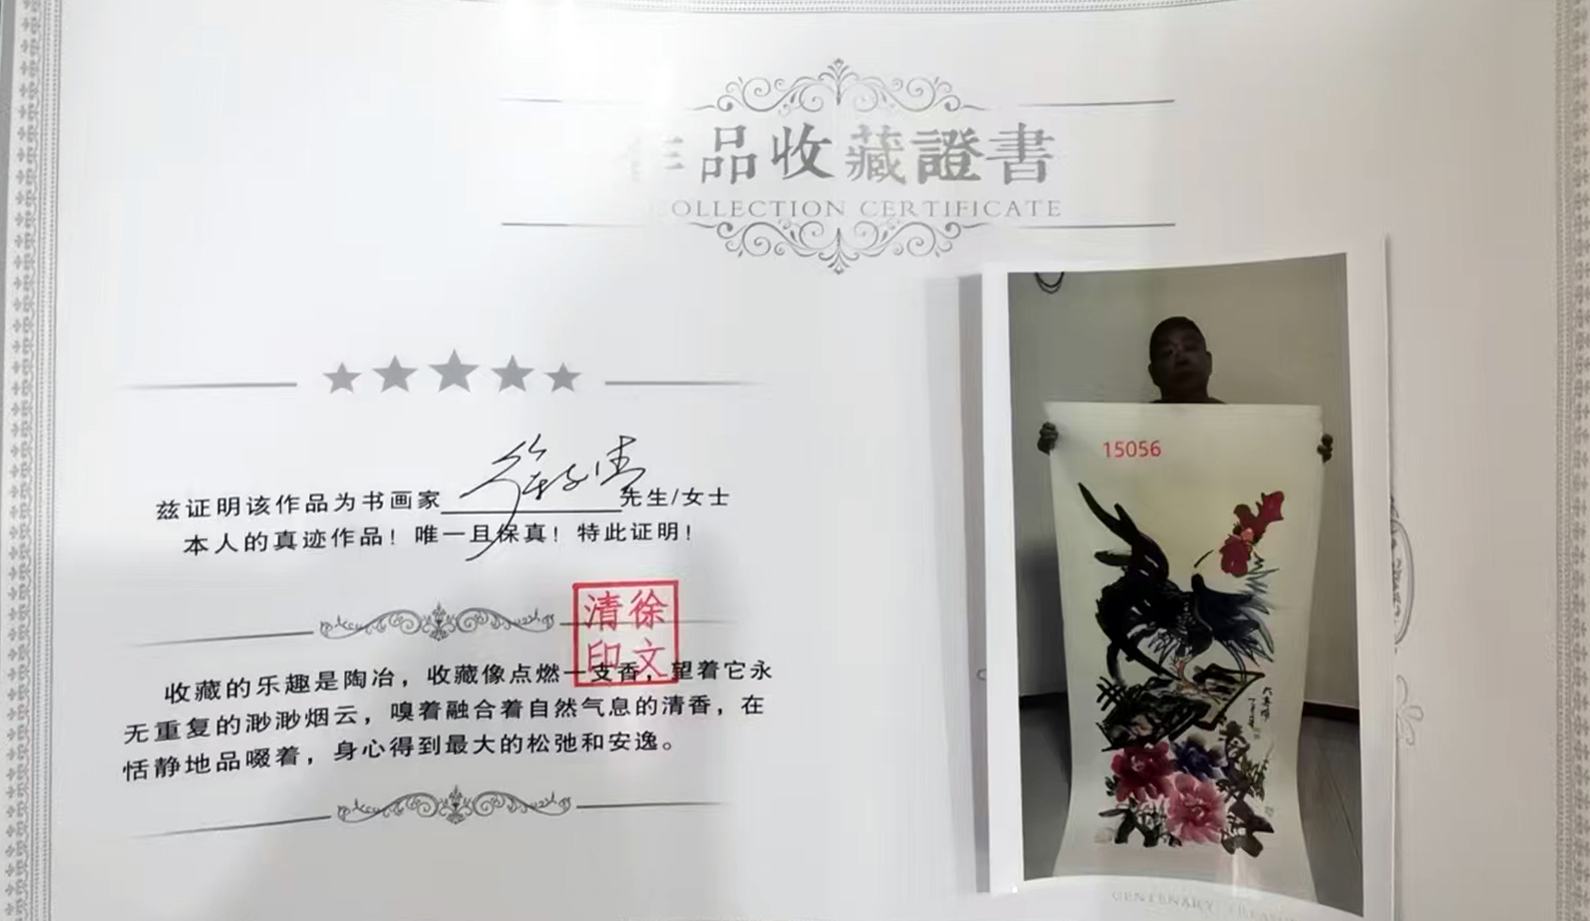 作品收藏證書
COLLECTION CERTIFICATE
兹证明该作品为书画家 先生/女士
本人的真迹作品！唯一且保真！特此证明！
徐文清印
收藏的乐趣是陶冶，收藏像点燃一支香，望着它永
无重复的渺渺烟云，嗅着融合着自然气息的清香，在
恬静地品啜着，身心得到最大的松弛和安逸。
15056
CENTENARY